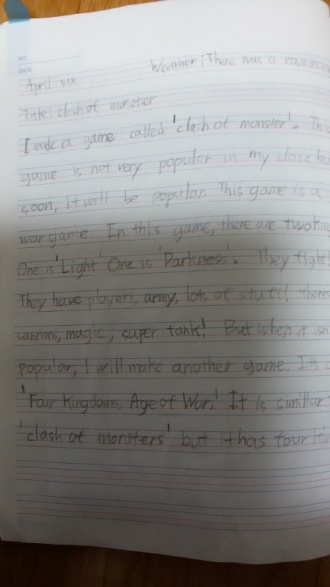 NO.
DATE
April six Weather: There was a rain
Title: clash of monster
I made a game called 'clash of monster'. Th
game is not very popular in my class bu
soon, it will be popular. This game is a
war game. In this game, there are two
One is 'Light' One is 'Darkness'. They fight
They have players, army, lots of stuff, there
cannons, magic, super tank! But when it
popular, I will make another game. It's
'Four Kingdoms, Age of War.' It is simillar
'clash of monsters' but it has four